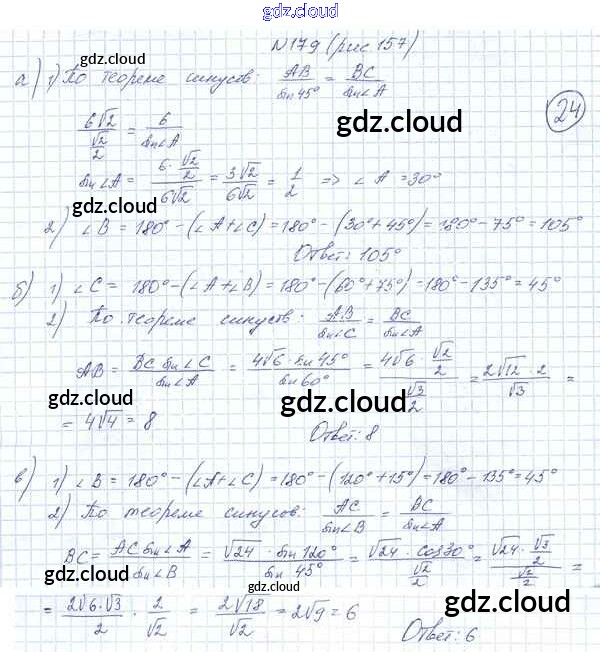 gdz.cloud
№179 (рис. 157)
24
а) 1) По теореме синусов: AB/sin45° = BC/sin∠A
gdz.cloud
6√2/(√2/2) = 6/sin∠A
gdz.cloud
sin∠A = (6·√2/2)/(6√2) = 3√2/(6√2) = 1/2 => ∠A = 30°
gdz.cloud
2) ∠B = 180° - (∠A+∠C) = 180° - (30°+45°) = 180° - 75° = 105°
Ответ: 105°
gdz.cloud
б) 1) ∠C = 180° - (∠A+∠B) = 180° - (60°+75°) = 180° - 135° = 45°
2) По теореме синусов: AB/sin∠C = BC/sin∠A
gdz.cloud
AB = BC sin∠C/sin∠A = 4√6·sin45°/sin60° = (4√6·√2/2)/(√3/2) = 2√12·2/√3 =
gdz.cloud
gdz.cloud
= 4√4 = 8
Ответ: 8
в) 1) ∠B = 180° - (∠A+∠C) = 180° - (120°+15°) = 180° - 135° = 45°
gdz.cloud
2) По теореме синусов: AC/sin∠B = BC/sin∠A
gdz.cloud
BC = AC sin∠A/sin∠B = √24·sin120°/sin45° = √24·cos30°/(√2/2) = (√24·√3/2)/(√2/2) =
gdz.cloud
gdz.cloud
= 2√6·√3/2 · 2/√2 = 2√18/√2 = 2√9 = 6
gdz.cloud
Ответ: 6
gdz.cloud